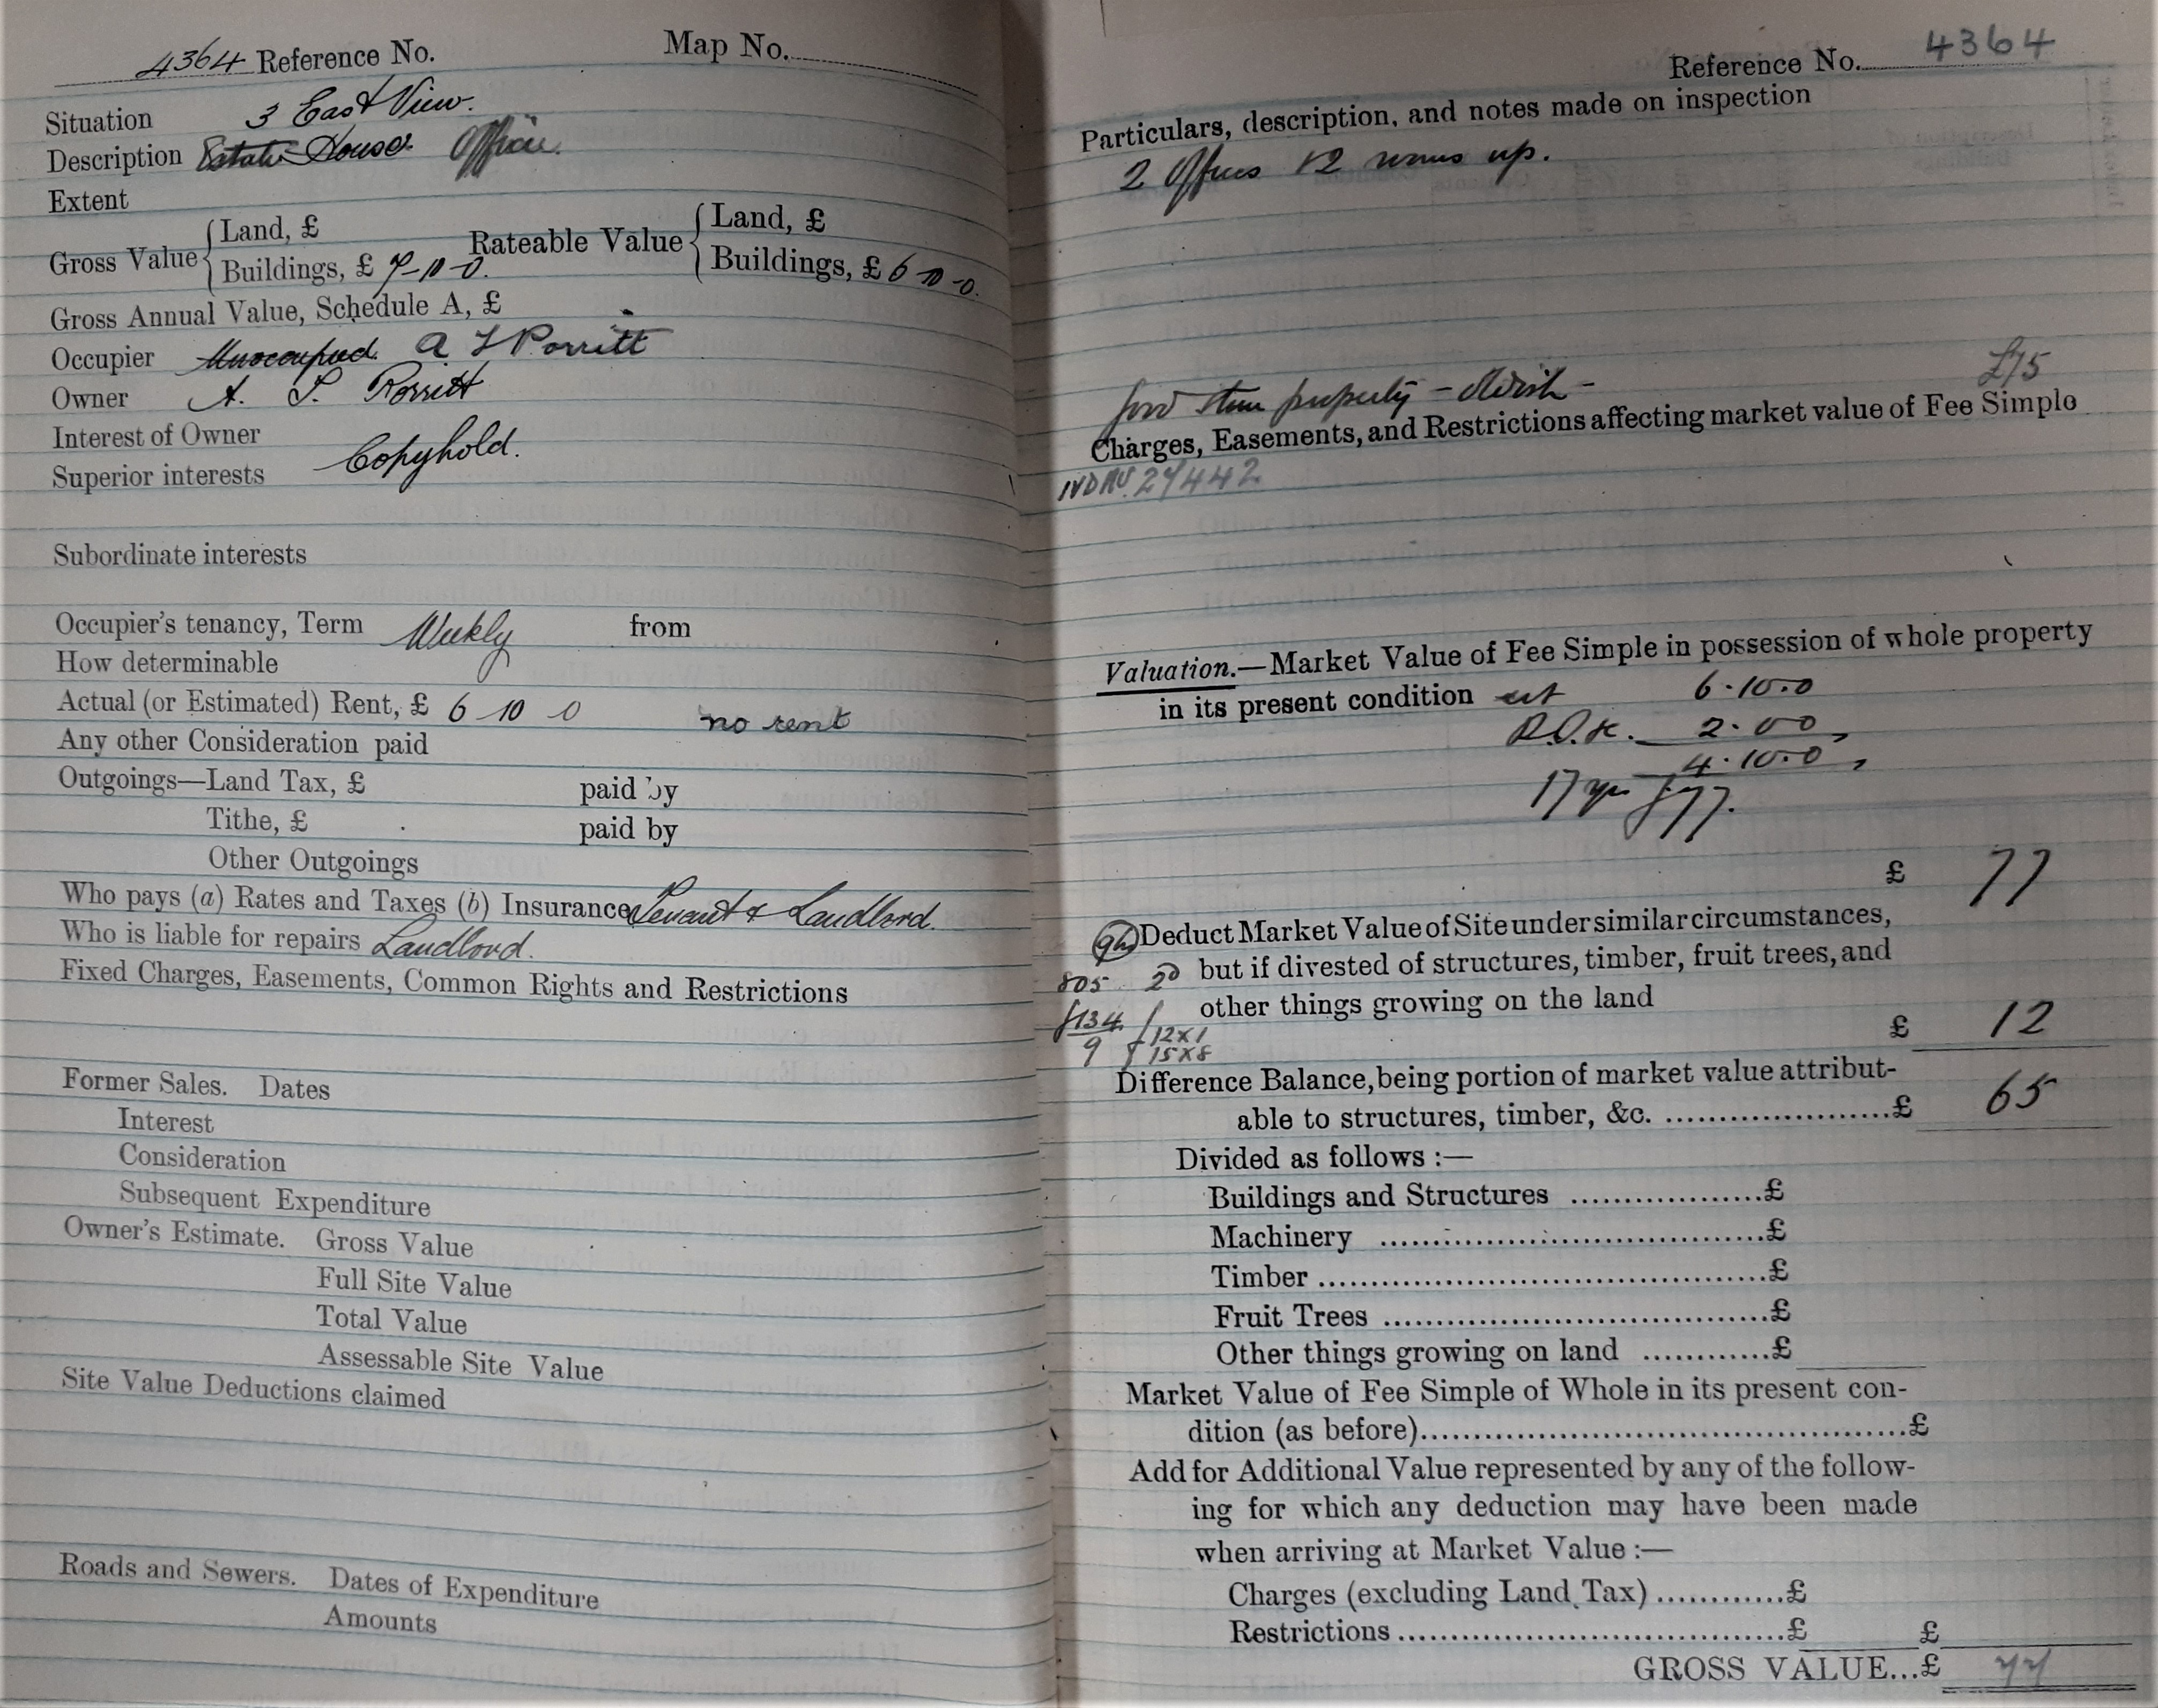 4364 Reference No. Map No.
Situation 3 East View.
Description Estate House. Office.
Extent
Gross Value { Land, £
Buildings, £ 7-10-0. Rateable Value { Land, £
Buildings, £ 6-10-0.
Gross Annual Value, Schedule A, £
Occupier Unoccupied. A T Porritt
Owner A. T. Porritt
Interest of Owner
Superior interests Copyhold.
Subordinate interests
Occupier's tenancy, Term Weekly from
How determinable
Actual (or Estimated) Rent, £ 6 10 0 no rent
Any other Consideration paid
Outgoings—Land Tax, £ paid by
Tithe, £ paid by
Other Outgoings
Who pays (a) Rates and Taxes (b) Insurance Tenant & Landlord.
Who is liable for repairs Landlord.
Fixed Charges, Easements, Common Rights and Restrictions
Former Sales. Dates
Interest
Consideration
Subsequent Expenditure
Owner's Estimate. Gross Value
Full Site Value
Total Value
Assessable Site Value
Site Value Deductions claimed
Roads and Sewers. Dates of Expenditure
Amounts
Reference No. 4364
Particulars, description, and notes made on inspection
2 Offices & 2 rooms up.
£75
Good stone property -
Charges, Easements, and Restrictions affecting market value of Fee Simple
27442
Valuation.—Market Value of Fee Simple in possession of whole property
in its present condition 6.10.0
2.0.0
4.10.0
17 yrs £77.
£ 77
Deduct Market Value of Site under similar circumstances,
805 20 but if divested of structures, timber, fruit trees, and
other things growing on the land
£134
9 12x1
15x8
£ 12
Difference Balance, being portion of market value attribut-
able to structures, timber, &c. ....................£ 65
Divided as follows :—
Buildings and Structures ..................£
Machinery ....................................£
Timber ..........................................£
Fruit Trees ....................................£
Other things growing on land ............£
Market Value of Fee Simple of Whole in its present con-
dition (as before)..............................................£
Add for Additional Value represented by any of the follow-
ing for which any deduction may have been made
when arriving at Market Value :—
Charges (excluding Land Tax) ............£
Restrictions ....................................£ £
GROSS VALUE...£ 77